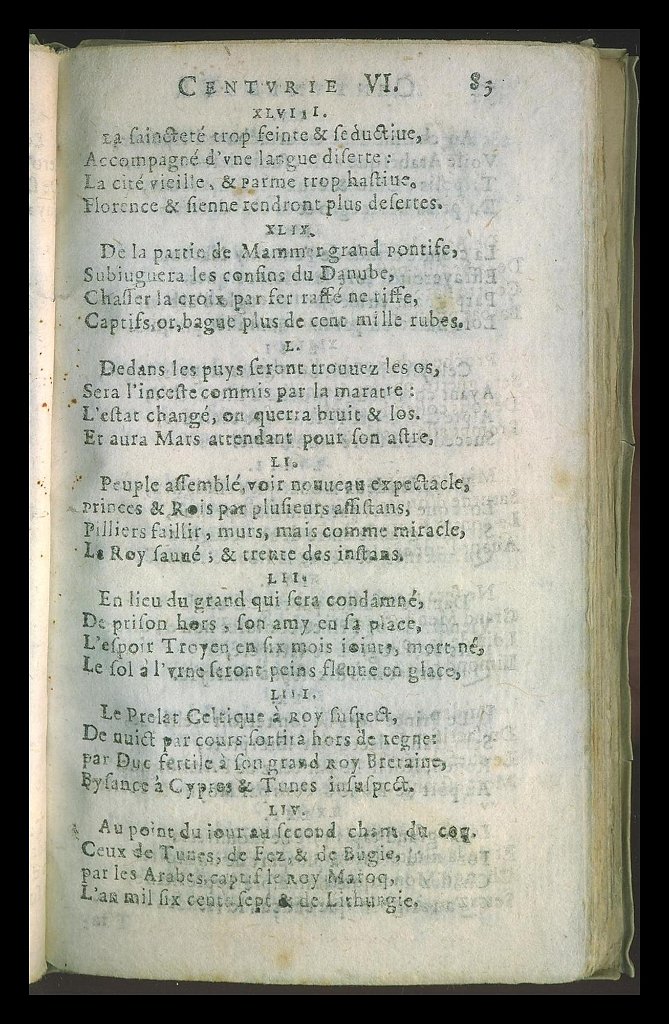 CENTVRIE VI. 85
XLVIII.
La saincteté trop feinte & seductiue,
Accompagné d'vne langue diserte:
La cité vieille, & parme trop hastiue,
Florence & sienne rendront plus desertes.
XLIX.
De la partie de Mammer grand pontife,
Subiuguera les confins du Danube,
Chasser la croix par fer raffé ne riffe,
Captifs, or, bague plus de cent mille rubes.
L.
Dedans les puys seront trouuez les os,
Sera l'inceste commis par la maratre:
L'estat changé, on querra bruit & los.
Et aura Mars attendant pour son astre,
LI.
Peuple assemblé, voir nouueau expectacle,
princes & Rois par plusieurs assistans,
Pilliers faillir, murs, mais comme miracle,
Le Roy sauué; & trente des instans.
LII.
En lieu du grand qui sera condamné,
De prison hors, son amy en sa place,
L'espoir Troyen en six mois ioints, mort né,
Le sol à l'vrne seront peins fleuue en glace,
LIII.
Le Prelat Celtique à Roy suspect,
De nuict par cours sortira hors de regne:
par Duc fertile à son grand Roy Bretaine,
Bysance à Cypres & Tunes insuspect.
LIV.
Au point du iour au second chant du coq.
Ceux de Tunes, de Fez, & de Bugie,
par les Arabes captif le Roy Maroq,
L'an mil six cents sept & de Lithurgie.